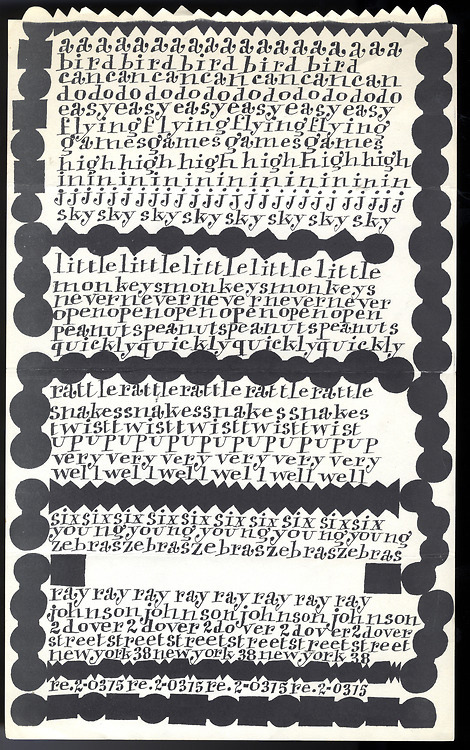 a a a a a a a a a a a a a a a a a a a
bird bird bird bird bird
cancancancancancancan
dodododododododododododo
easyeasyeasyeasyeasyeasy
flyingflyingflyingflying
gamesgamesgamesgames
highhigh high high highhigh
inininininininininininin
j j j j j j j j j j j j j j j j j j j j
skysky sky sky sky sky sky sky
littlelittlelittlelittlelittle
monkeysmonkeysmonkeys
nevernevernevernevernever
openopenopenopenopenopen
peanutspeanutspeanutspeanuts
quicklyquicklyquicklyquickly
rattlerattlerattlerattlerattle
snakessnakessnakessnakessnakes
twisttwisttwisttwisttwist
upupupupupupupupupupup
very very very very very very
wellwellwellwellwellwell
sixsixsixsixsixsixsixsixsixsix
youngyoungyoungyoungyoung
zebraszebraszebraszebraszebras
ray ray ray ray ray ray ray ray
johnsonjohnsonjohnsonjohnson
2 dover 2 dover 2 dover 2 dover 2 dover
streetstreetstreetstreetstreetstreet
new york 38 new york 38 new york 38
re.2-0375 re.2-0375 re.2-0375 re.2-0375